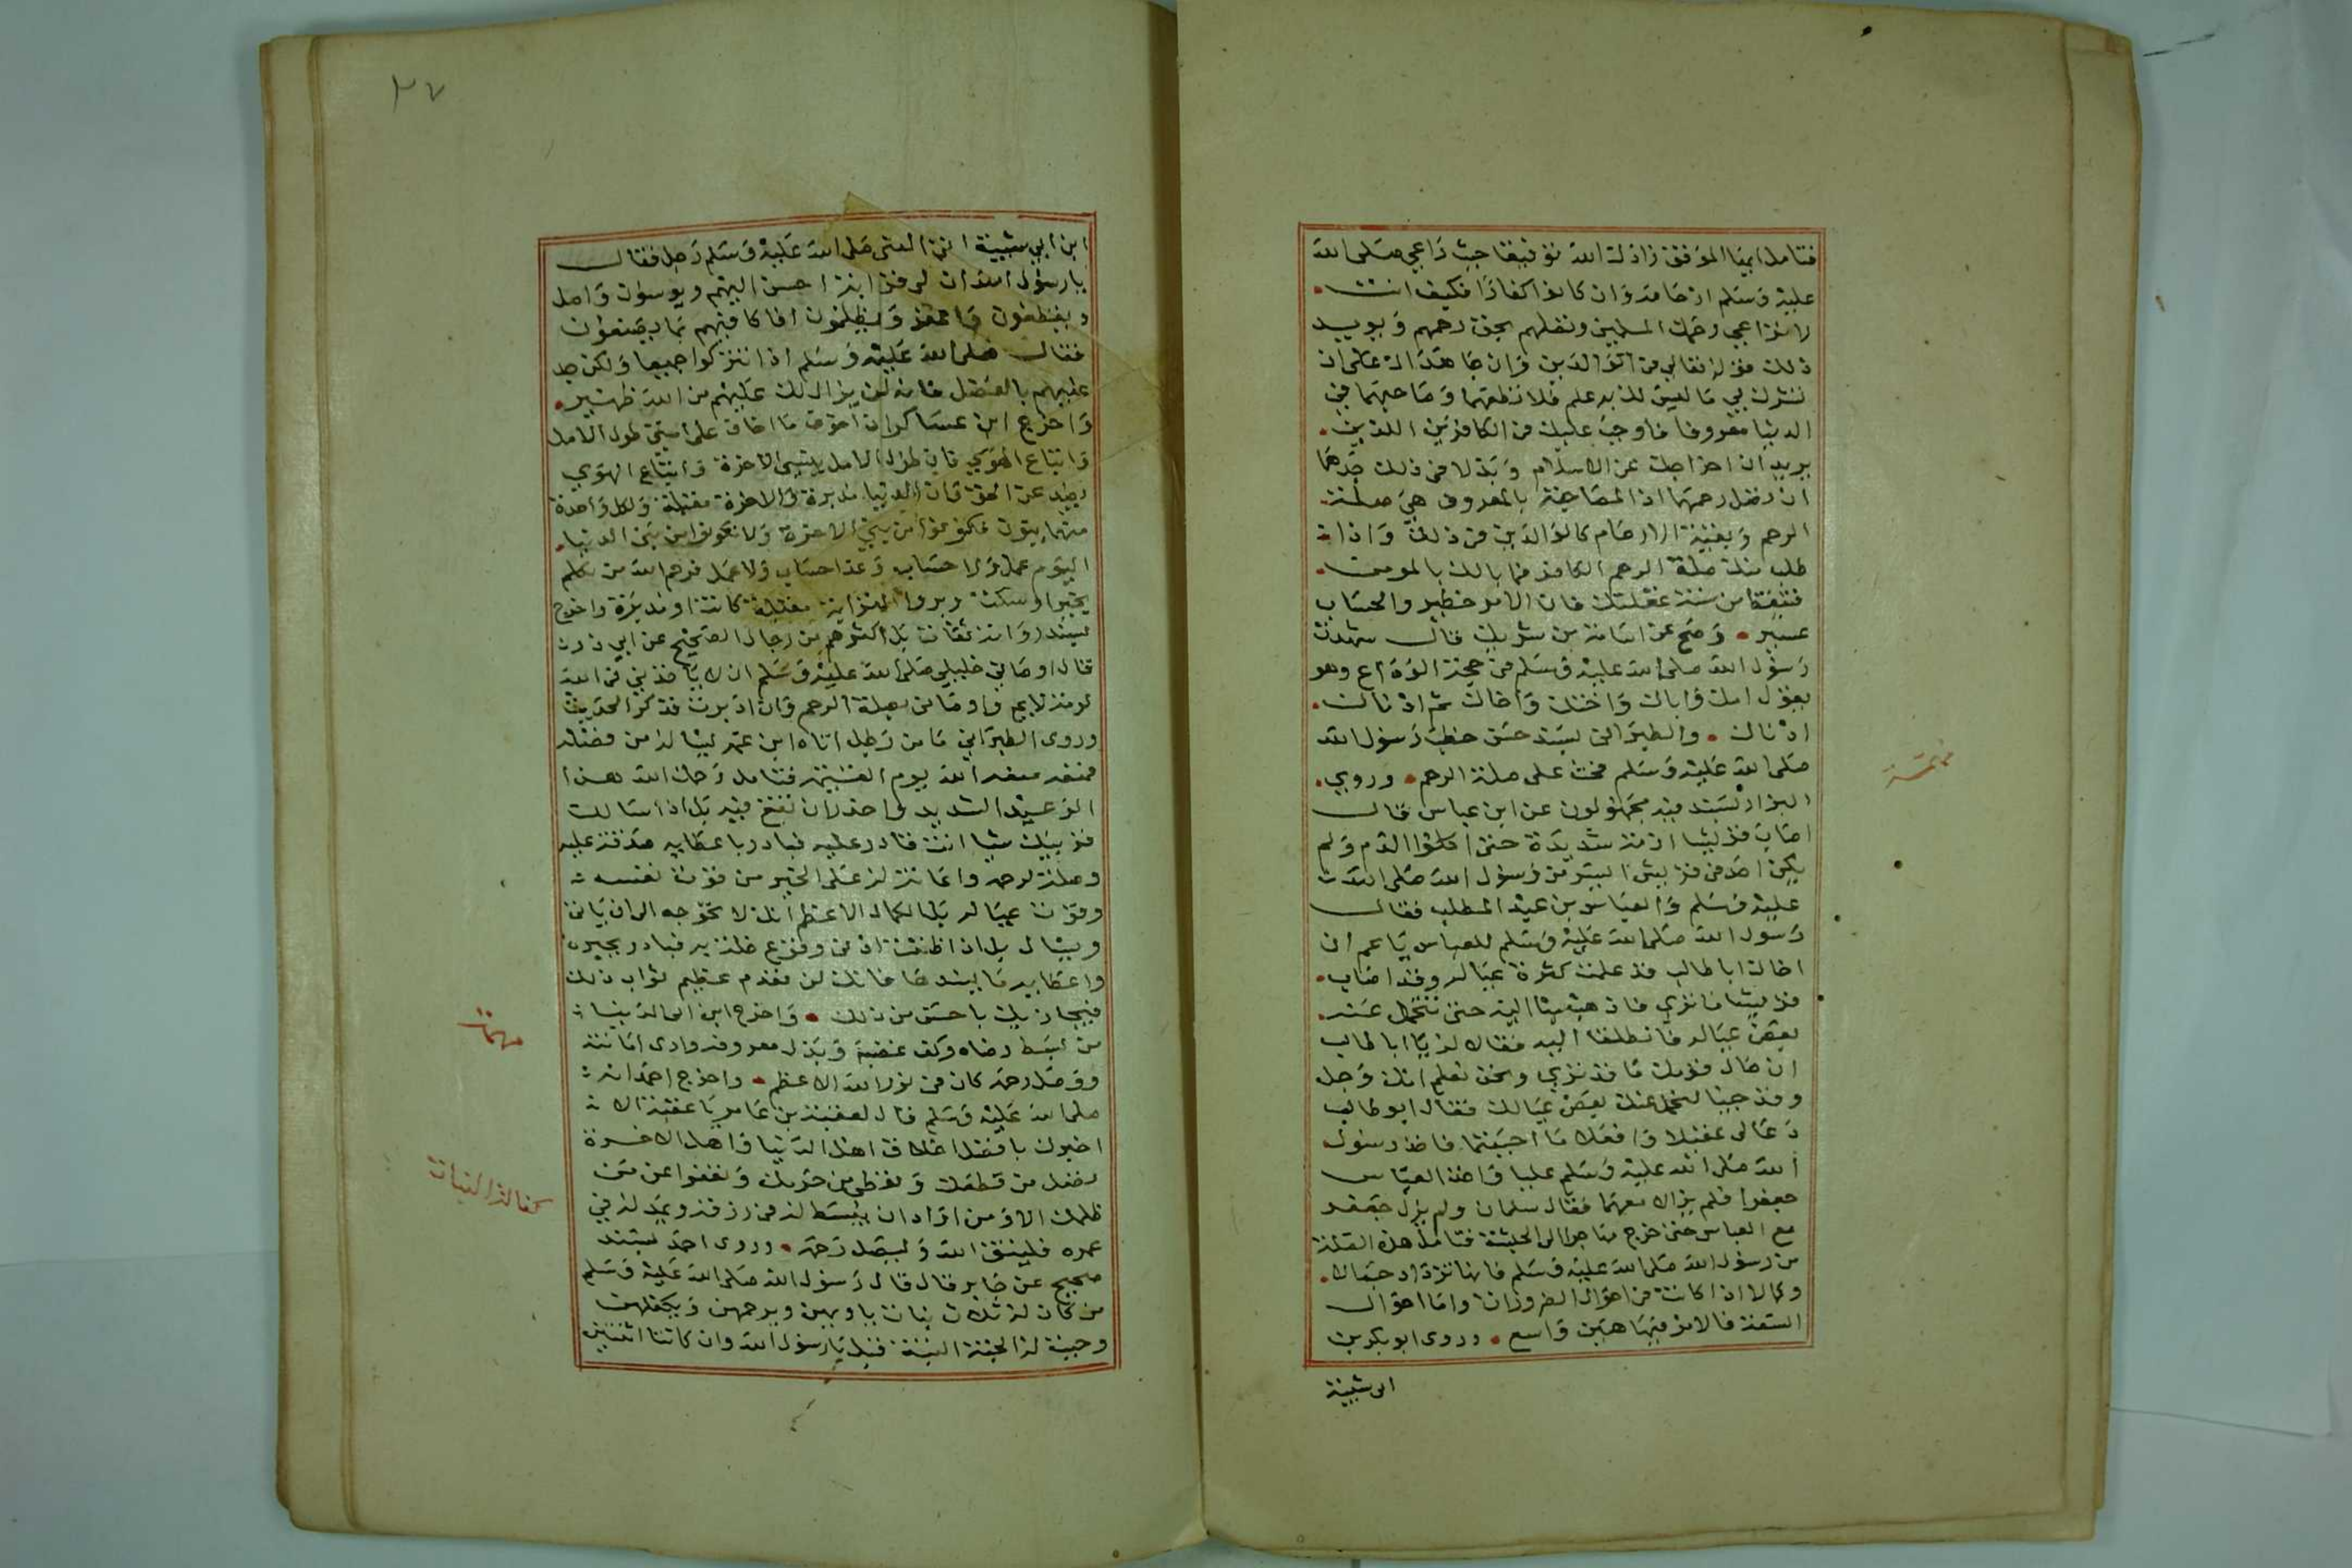 فتامل ايها الموفق زادك الله توفيقا حيث راعي صلى الله
عليه وسلم ارحامه وان كانوا كفارا فكيف انت
لا تراعي رحمك المسلمين وتصلهم بحق رحمهم ويويد
ذلك قوله تعالى في الوالدين وان جاهداك على ان
تشرك بي ما ليس لك به علم فلا تطعهما وصاحبهما في
الدنيا معروفا فاوجب عليك في الكافرين اللذين
يريدان اخراجك عن الاسلام وبذلا في ذلك جدهما
ان تصل رحمهما اذ المصاحبة بالمعروف هي صلة
الرحم وبقية الارحام كالوالدين في ذلك واذا
طلب منك صلة الرحم الكافر فما بالك بالمومن
فتيقظ من سنة غفلتك فان الامر خطير والحساب
عسير وصح عن اسامة بن شريك قال شهدت
رسول الله صلى الله عليه وسلم في حجة الوداع وهو
يقول امك واباك واختك واخاك ثم ادناك
ادناك والطبراني بسند حسن خطب رسول الله
صلى الله عليه وسلم فحث على صلة الرحم وروي
البزار بسند فيه مجهولون عن ابن عباس قال
اصاب قريشا ازمة شديدة حتى اكلوا الدم ولم
يكن احد من قريش ايسر من رسول الله صلى الله
عليه وسلم والعباس بن عبد المطلب فقال
رسول الله صلى الله عليه وسلم للعباس يا عم ان
اخاك ابا طالب قد علمت كثرة عياله وقد اصاب
قريشا ما تري فاذهب بنا اليه حتى نتحمل عنه
بعض عياله فانطلقا اليه فقالا له يا ابا طالب
ان حال قومك ما قد تري ونحن نعلم انك رجل
وقد جينا لنحمل عنك بعض عيالك فقال ابو طالب
دعا لى عقيلا وافعلا ما احببتما فاخذ رسول
الله صلى الله عليه وسلم عليا واخذ العباس
جعفرا فلم يزالا معهما فقال سلمان ولم يزل جعفر
مع العباس حتى خرج مهاجرا الى الحبشة فتامل هذه الصلة
من رسول الله صلى الله عليه وسلم فانها تزداد جمالا
وكمالا اذا كانت في احوال الضرورات واما احوال
السعة فالامر فيها هين واسع وروى ابو بكر بن
ابى شيبة
٢٧
ابن ابي شيبة اتى النبى صلى الله عليه وسلم رجل فقال
يا رسول الله ان لى قرابة احسن اليهم ويسؤن واصل
ويقطعون واعفو ويظلمون افاكافيهم بما يصنعون
فقال صلى الله عليه وسلم اذا تتركوا جميعا ولكن جد
عليهم بالفضل فانه لن يزال لك عليهم من الله ظهير
واخرج ابن عساكر ان اخوف ما اخاف على امتي طول الامل
واتباع الهوي فان طول الامل ينسي الاخرة واتباع الهوي
يصد عن الحق فان الدنيا مدبرة والاخرة مقبلة ولكل واحدة
منهما بنون فكونوا من بني الاخرة ولا تكونوا من بني الدنيا
اليوم عمل ولا حساب وغدا حساب ولا عمل فرحم الله من تكلم
بخير او سكت وبروا القرابة مقبلة كانت او مدبرة واخرج
بسند رواته ثقات بل اكثرهم من رجال الصحيح عن ابي ذر
قال اوصاني خليلي صلى الله عليه وسلم ان لا ياخذني في الله
لومة لايم واوصانى بصلة الرحم وان ادبرت فذكر الحديث
وروى الطبراني ما من رجل اتاه ابن عمه يساله من فضله
فمنعه منعه الله يوم القيمة فتامل رحمك الله هذا
الوعيد الشديد واحذر ان تقع فيه بل اذا سالك
قريبك شيا انت قادر عليه فبادر باعطايه صدقة عليه
وصلة لرحمه واعانة له على الخير من قوت نفسه
وقوت عياله بل الكمال الاعظم انك لا تحوجه الى ان ياتي
ويسال بل ان اظننت ادنى وقوع خلة به فبادر بجبره
واعطايه ما يسدها فانك لن تعدم عظيم ثواب ذلك
فيجازيك باحسن من ذلك واخرج ابن ابى الدنيا
من بسط رضاه وكف غضبه وبذل معروفه وادى امانته
ووصل رحمه كان في نور الله الاعظم واخرج احمد انه
صلى الله عليه وسلم قال لعقبة بن عامر يا عقبة الا
اخبرك بافضل اخلاق اهل الدنيا واهل الاخرة
تصل من قطعك وتعطي من حرمك وتعفوا عن من
ظلمك الا ومن اراد ان يبسط له في رزقه ويمد له في
عمره فليتق الله وليصل رحمه وروى احمد بسند
صحيح عن جابر قال قال رسول الله صلى الله عليه وسلم
من كان له ثلاث بنات ياويهن ويرحمهن ويكفلهن
وجبت له الجنة البتة قيل يا رسول الله وان كانتا اثنتين
مهمات
كفالة البنات